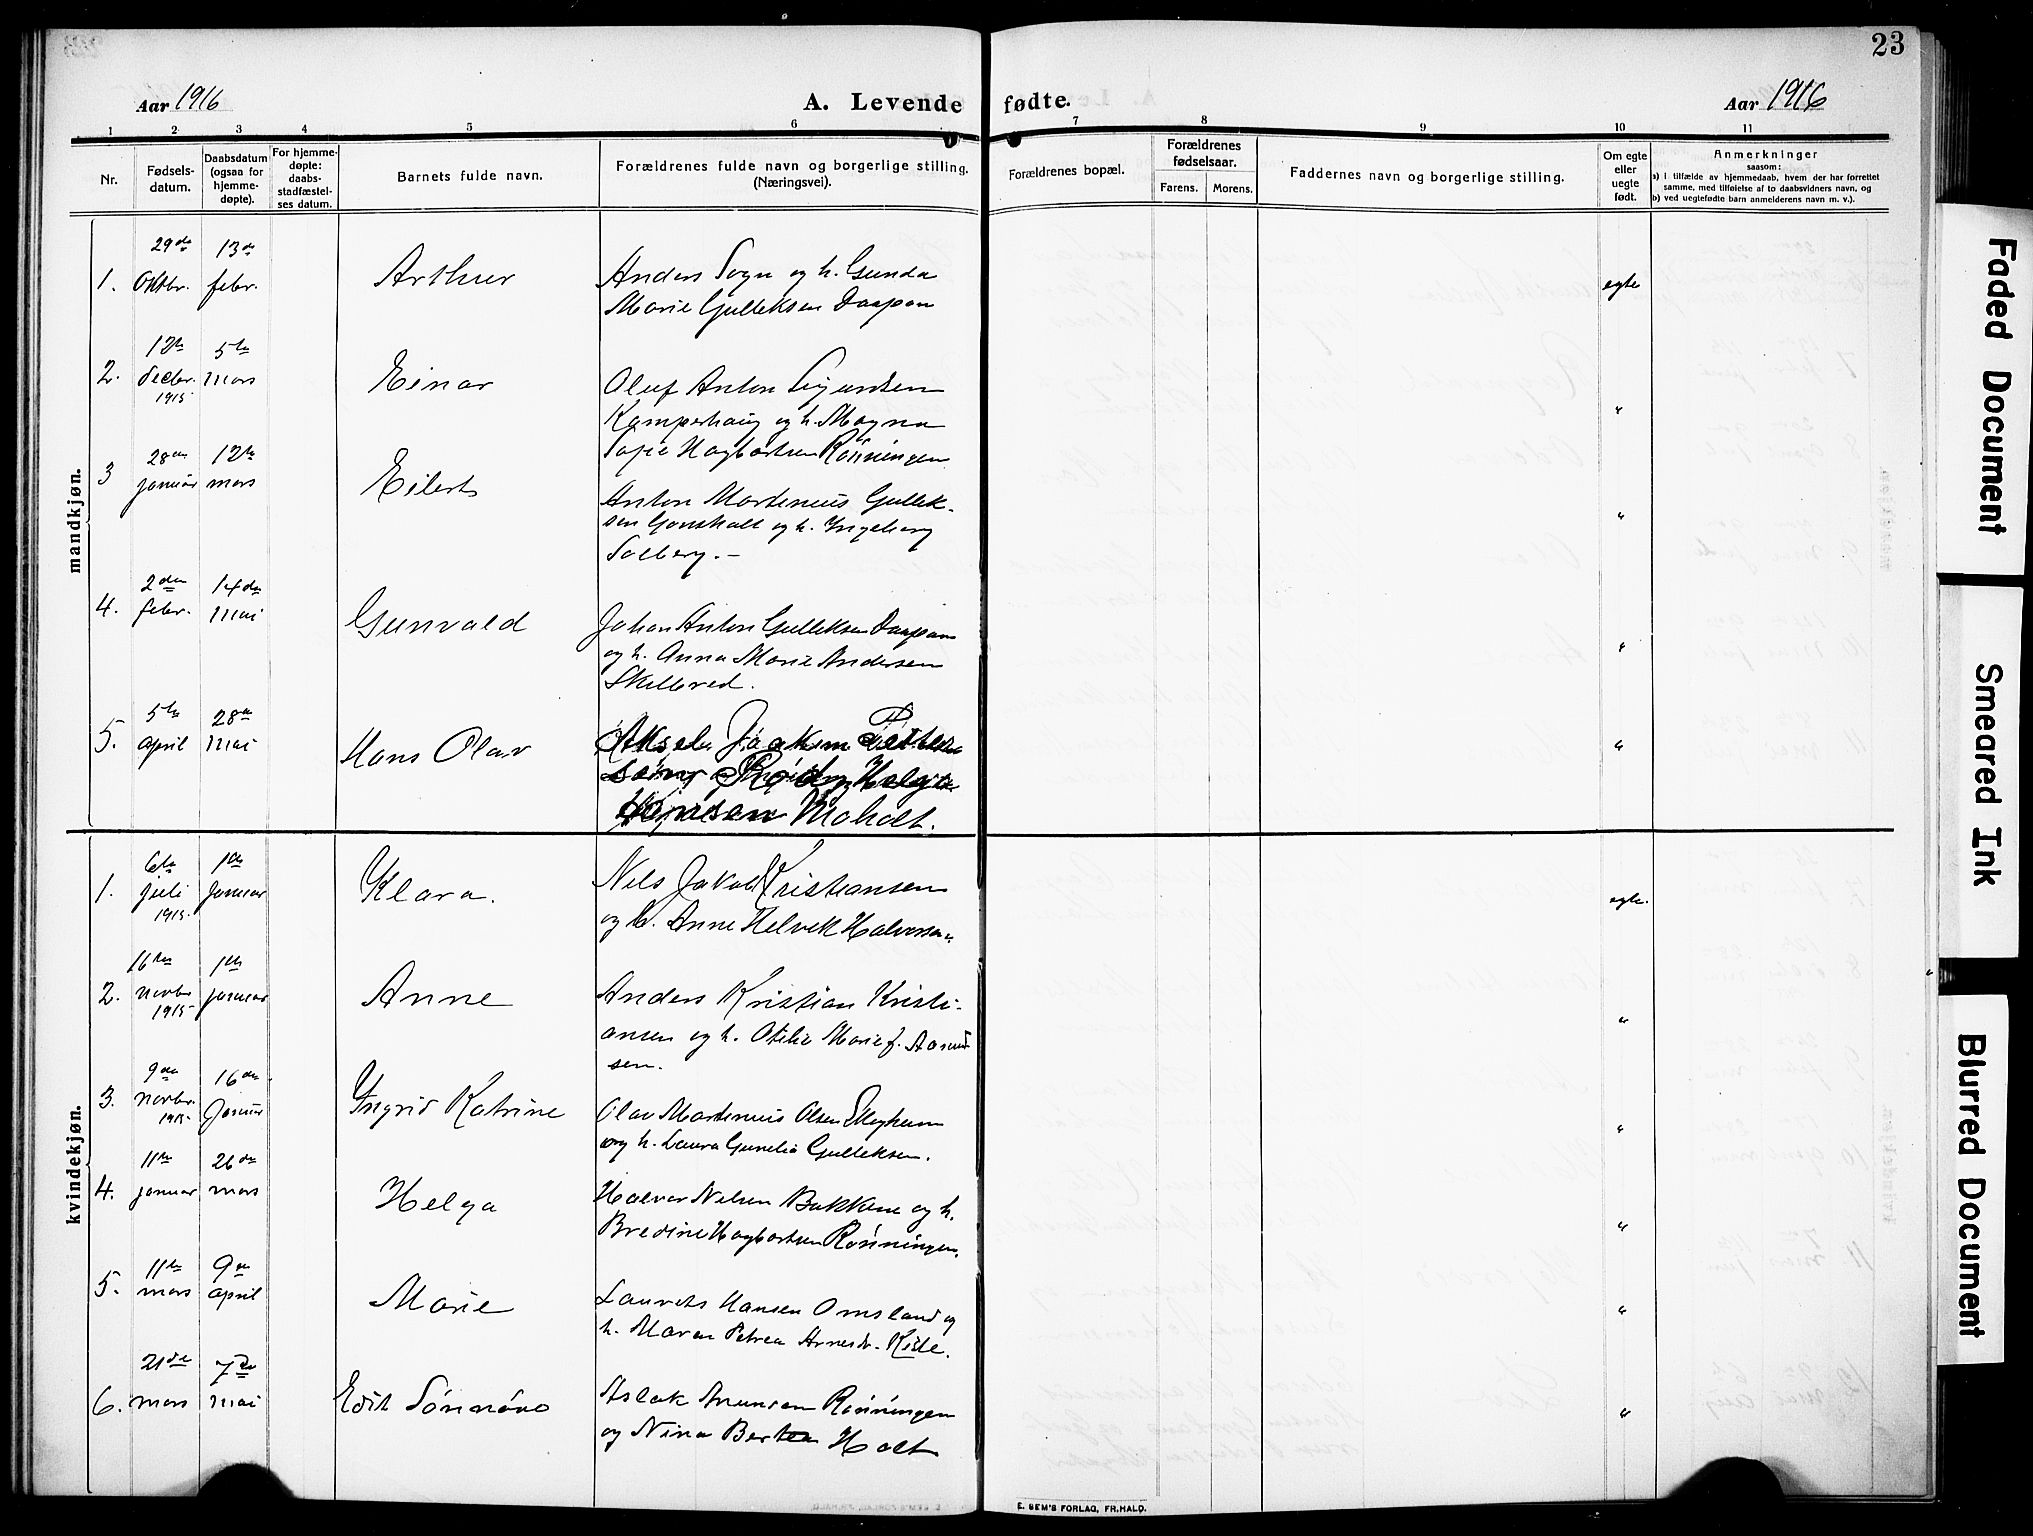 23
Aar 1916 A. Levende fødte. Aar 1916
1 2 3 4 5 6 7 8 9 10 11
Nr.
Fødsels-
datum.
Daabsdatum
(ogsaa for
hjemme-
døpte).
For hjemme-
døpte:
daabs-
stadfæstel-
ses datum.
Barnets fulde navn.
Forældrenes fulde navn og borgerlige stilling.
(Næringsvei).
Forældrenes bopæl.
Forældrenes
fødselsaar.
Farens. Morens.
Faddernes navn og borgerlige stilling.
Om egte
eller
uegte
født.
Anmerkninger
saasom:
a) i tilfælde av hjemmedaab, hvem der har forrettet
samme, med tilføielse af to daabsvidners navn, og
b) ved uegtefødte barn anmelderens navn m. v.).
mandkjøn.
29de 13de
1. Oktbr. febr. Arthur Anders Sogn og h. Gunda egte
Marie Gulleksen Daapan
12te 5te
2. Decbr. mars Einar Oluf Anton Sigurdsen
1915 Kamperhaug og h. Magna "
Sofie Hagbartsen Rönningen
28de 12te
3 januar mars Eilert Anton Martinius Gullek-
sen Gonsholt og h. Ingeborg "
Solberg. -
2den 14de
4. febr. Mai Gunvald Johan Anton Gulleksen Daapan
og h. Anna Marie Andersen "
Skilbred.
5te 28de
5. april Mai Hans Olav Aksel Joakim "
Helga
Moholt.
kvindekjøn.
6te 1ste
1. juli Januar Klara. Nils Jakob Kristiansen egte.
1915 og h. Anne Helvik Halvorsen
16de 1ste
2. novbr januar Anne Anders Kristian Kristi-
1915 ansen og h. Otilie Marie f. Aasmund "
sen.
9de 16de
3. novbr. Januar Ingrid Katrine Olav Martinius Olsen
1915 og h. Laura Gunelia Gulleksen. "
11te 26de
4. januar mars Helga Halvor Nilsen Bakkene og h.
Bredine Hagbartsen Rönningen. "
11te 9de
5. mars april Marie Laurits Hansen Omsland og "
h. Maren Petrea Arnesdr. Kisle.
21de 7de
6. mars Mai Edit Sönnöve Aslak Amunsen Rönningen "
og Nina Holt
E. SEM'S FORLAG, FR.HALD.
Faded Document
Smeared Ink
Blurred Document